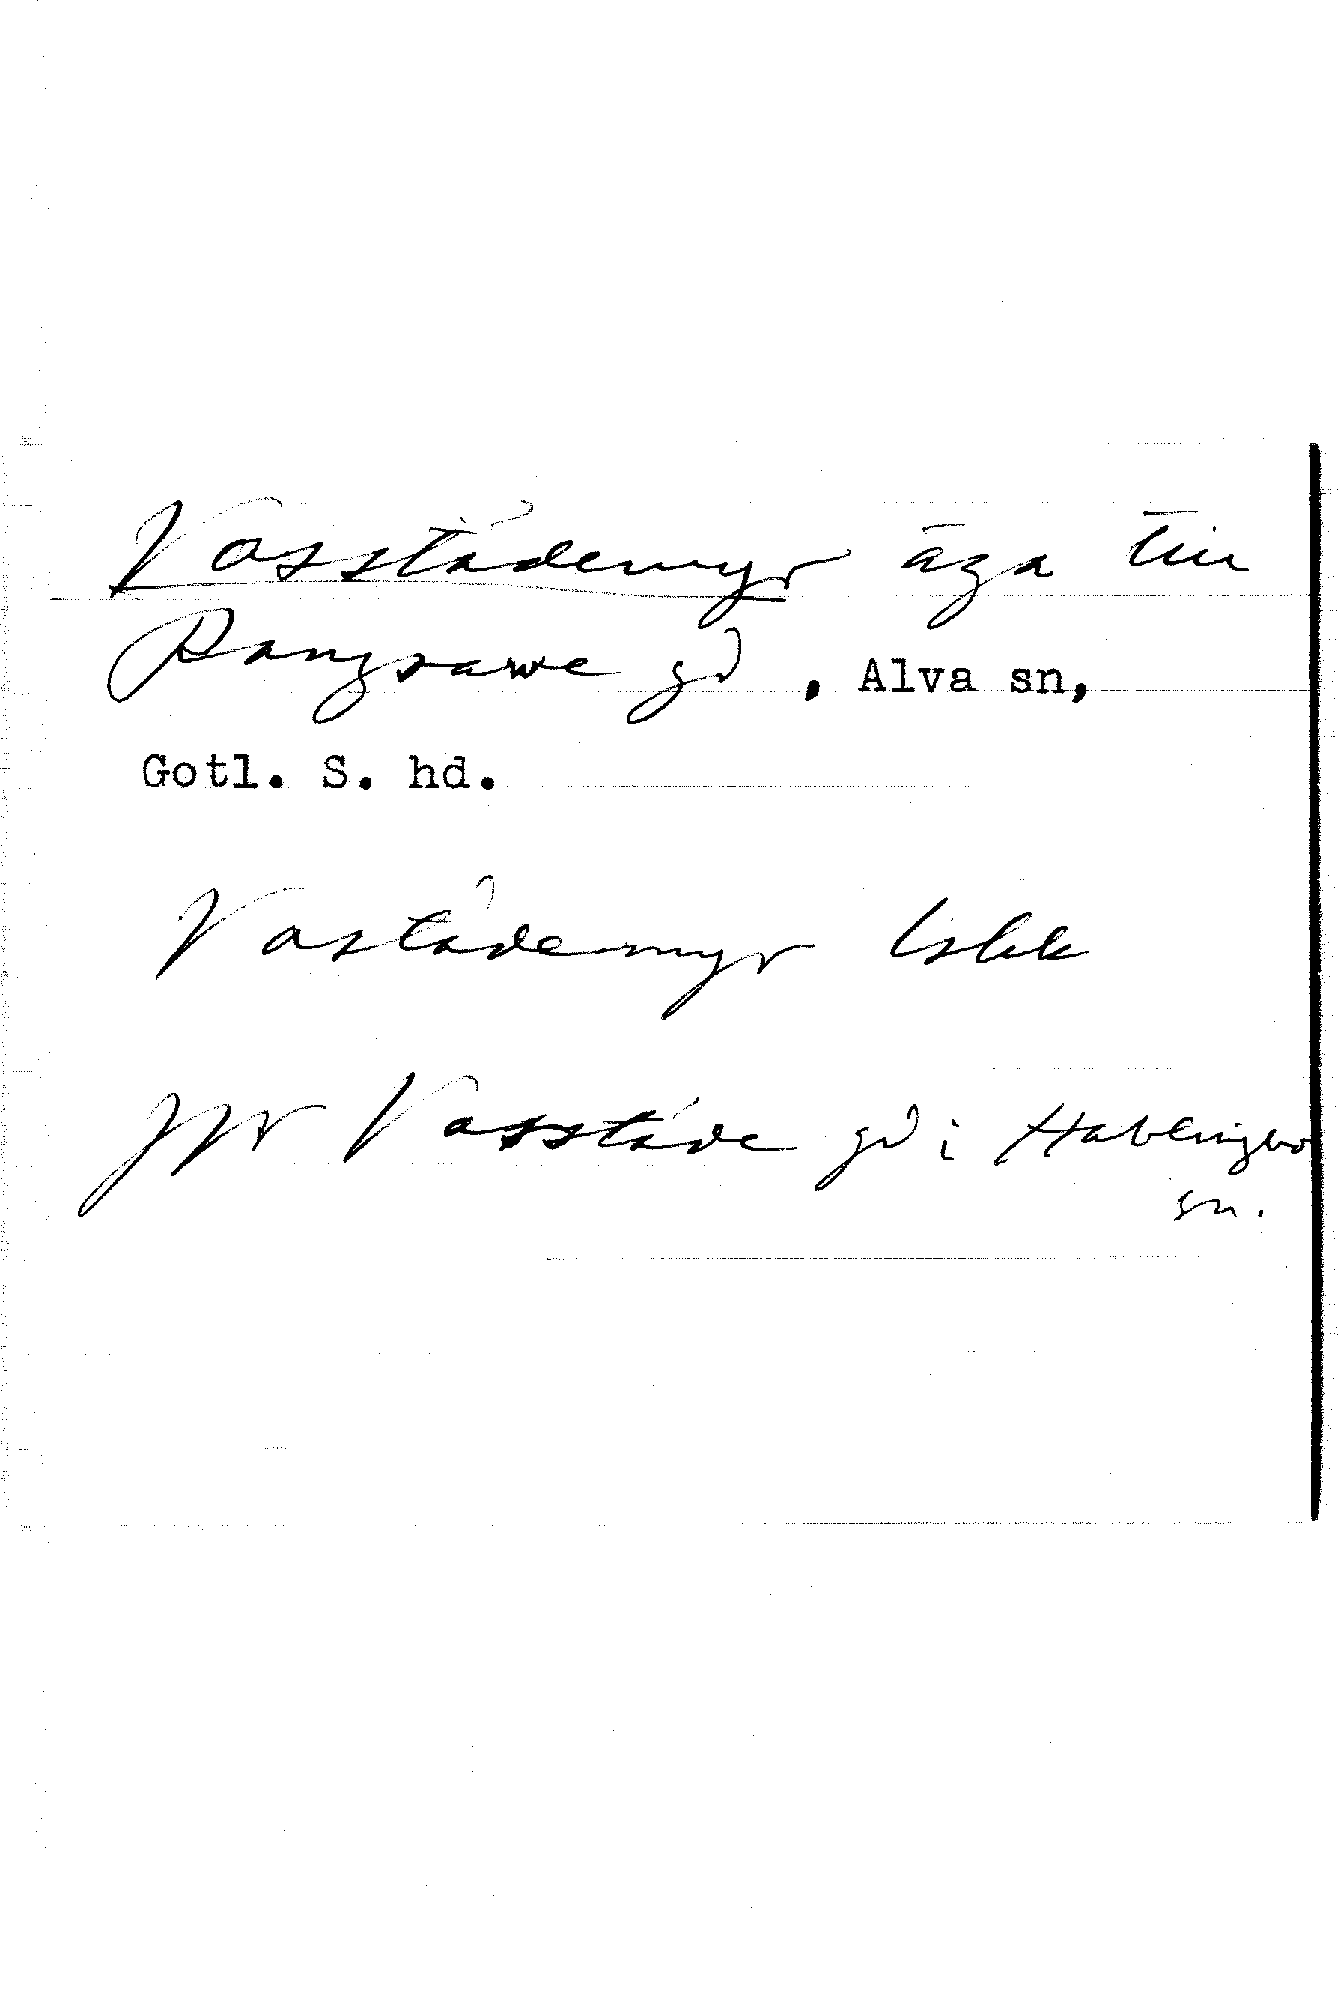 Vasstädemyr äga till
Rangsarve gd, Alva sn,
Gotl. S. hd.
Vastädemyr Lskk
Jfr Vasstäde gd i Hablingbo
sn.